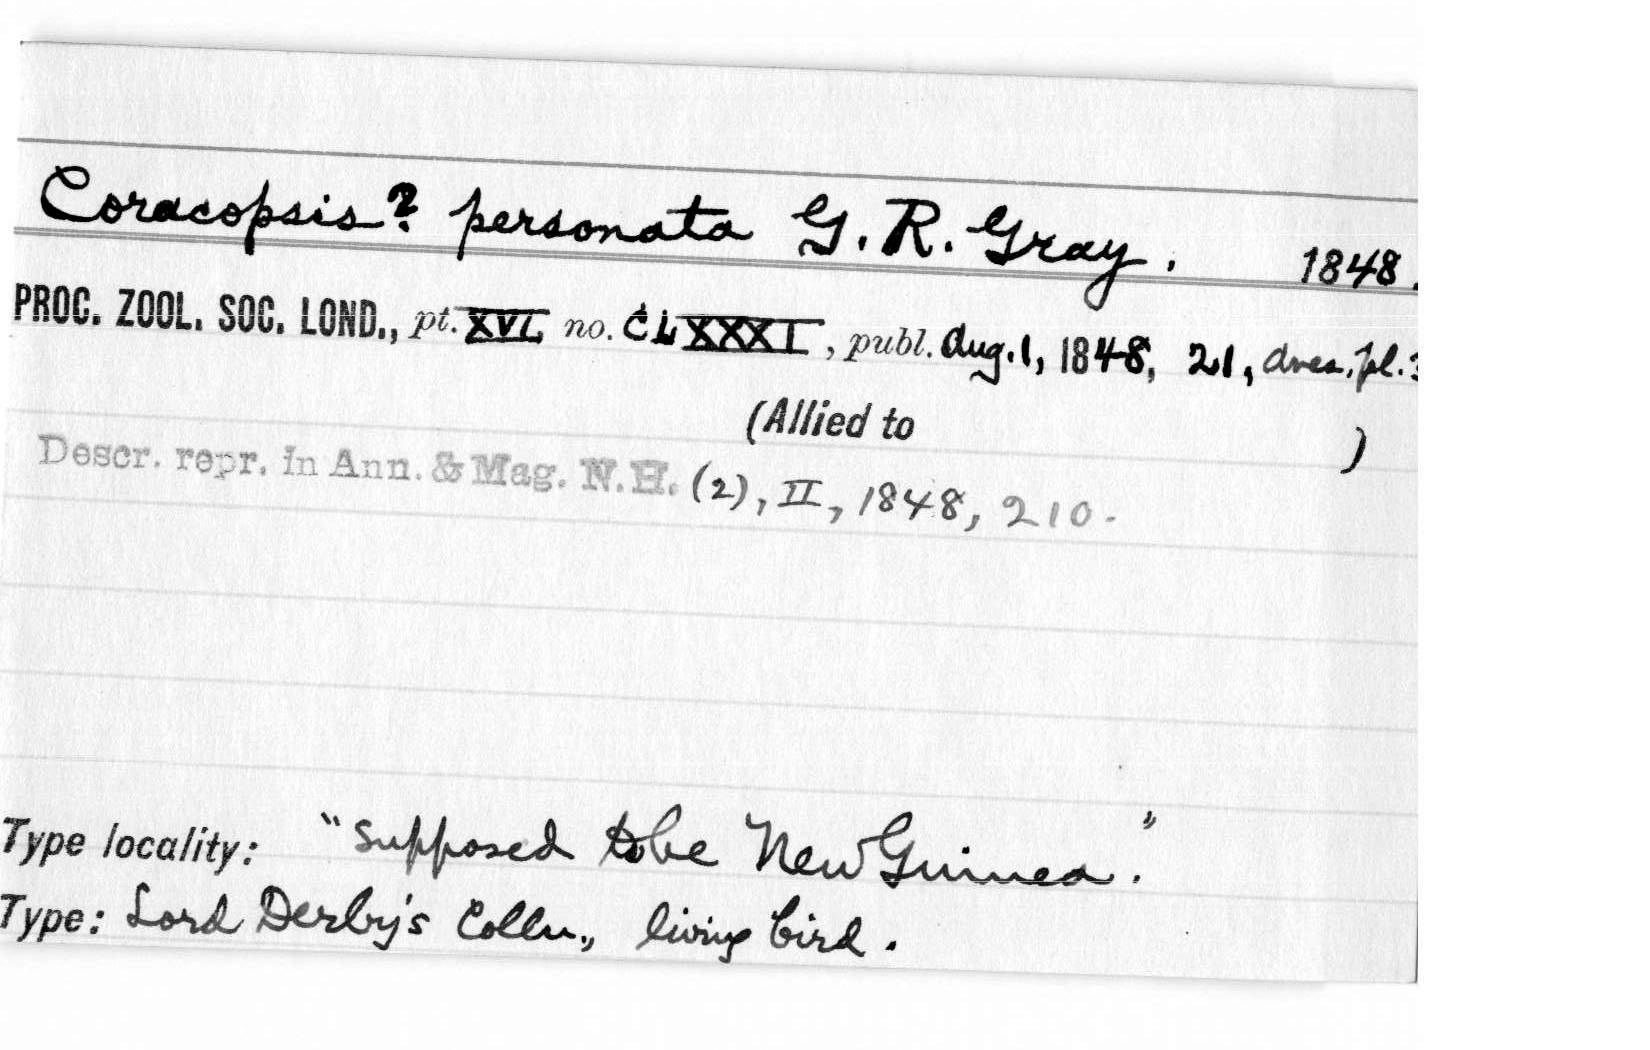 Coracopsis? personata G. R. Gray. 1848.
PROC. ZOOL. SOC. LOND., pt. XVI no. CLXXXI, publ. Aug. 1, 1848, 21, Aves, pl. 3
(Allied to )
Descr. repr. in Ann. & Mag. N.H. (2), II, 1848, 210.
Type locality: "Supposed to be New Guinea."
Type: Lord Derby's Colln., living bird.